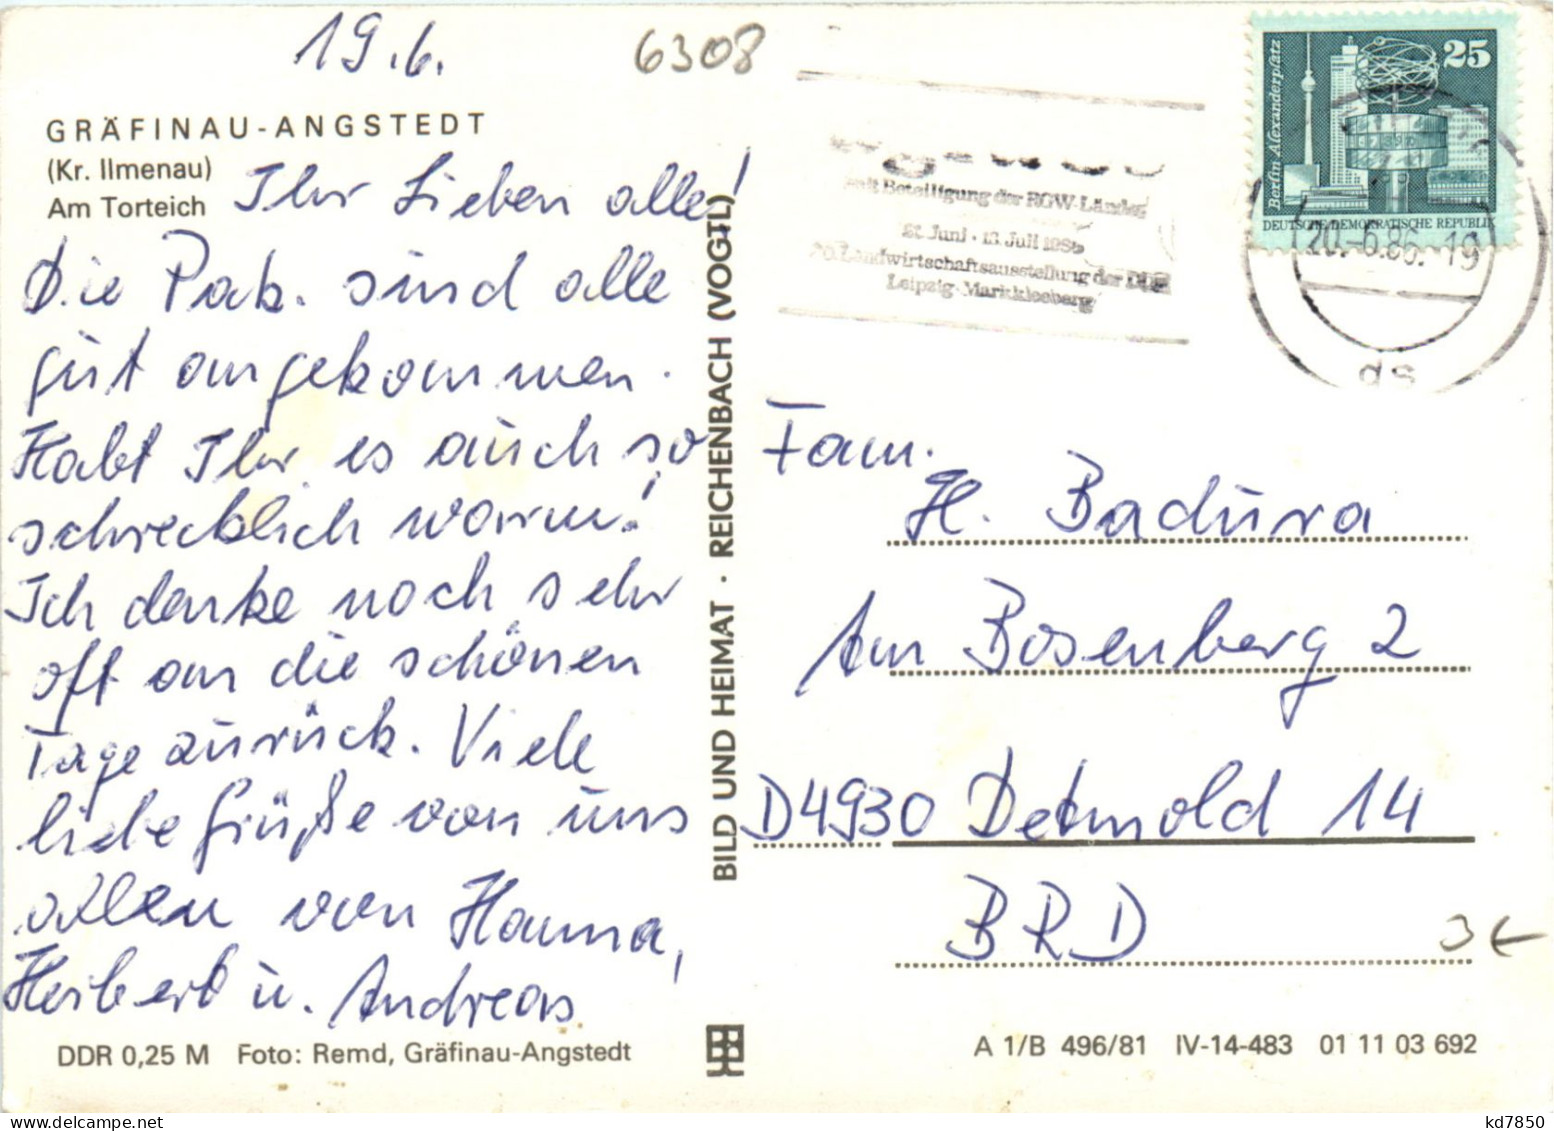 19.6.
6308
GRÄFINAU-ANGSTEDT
(Kr. Ilmenau)
Am Torteich
Ihr Lieben alle!
Die Pak. sind alle
gut angekommen.
Habt Ihr es auch so
schrecklich warm!
Ich denke noch sehr
oft an die schönen
Tage zurück. Viele
liebe Grüße von uns
allen von Hanna,
Herbert u. Andreas
DDR 0,25 M Foto: Remd, Gräfinau-Angstedt
BILD UND HEIMAT · REICHENBACH (VOGTL)
mit Beteiligung der RGW-Länder
21. Juni - 13. Juli 1986
Landwirtschaftsausstellung der DDR
Leipzig-Markkleeberg
25
Berlin Alexanderplatz
DEUTSCHE DEMOKRATISCHE REPUBLIK
20.-6.86.-19
ds
Fam.
H. Badura
Am Bosenberg 2
D4930 Detmold 14
BRD
3 €
A 1/B 496/81 IV-14-483 01 11 03 692
kd7850